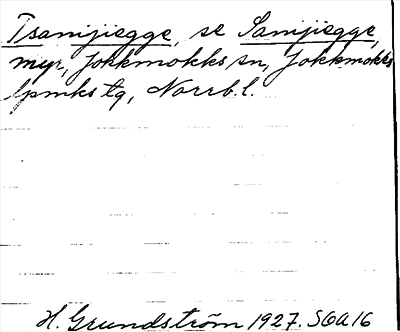 Tsamjiegge, se Samjiegge,
myr, Jokkmokks sn, Jokkmokks
lpmks tg, Norrb.l.
H. Grundström 1927. SOA 16